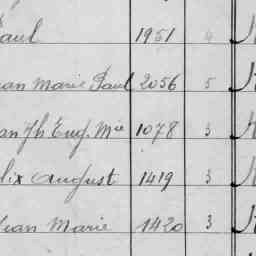 Paul 1951 4
ean Marie Paul 2056 5
ean Th Eug. Mie 1078 3
lix August 1419 3
Jean Marie 1420 3